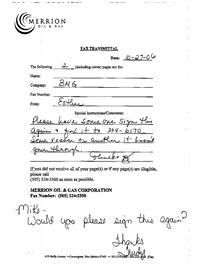 MERRION
OIL & GAS
FAX TRANSMITTAL
Date: 10-27-06
The following 2 (including cover) pages are for:
Name:
Company: BMG
Fax Number:
From: Esther
Special Instructions/Comments:
Please have someone sign this
again & fax it to 324-5350.
Some reason or another it
gone through.
Thanks
If you did not receive all of your page(s) or if any page(s) are illegible,
please call
(505) 324-5300 as soon as possible.
MERRION OIL & GAS CORPORATION
Fax Number: (505) 324-5350
Mike -
Would you please sign this again?
Thanks
610 Reilly Avenue • Farmington, New Mexico 87401